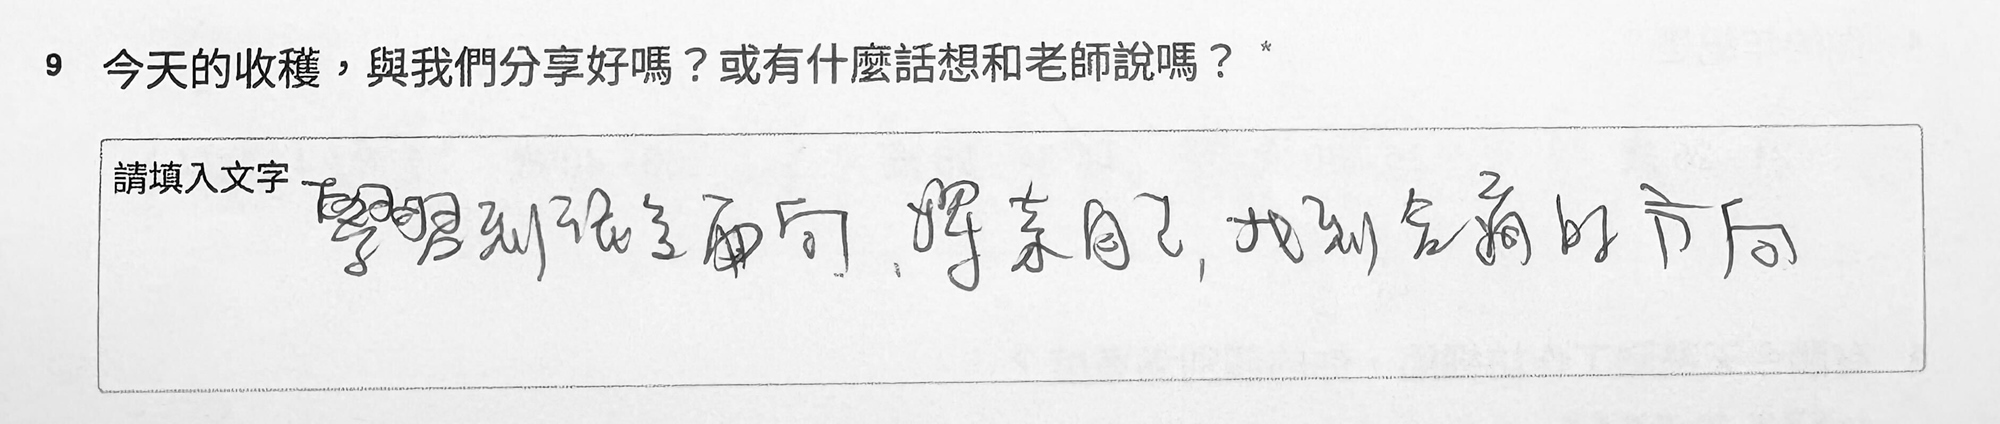 9 今天的收穫，與我們分享好嗎？或有什麼話想和老師說嗎？ *
請填入文字
學習到 面向、 自己, 找到合適的方向